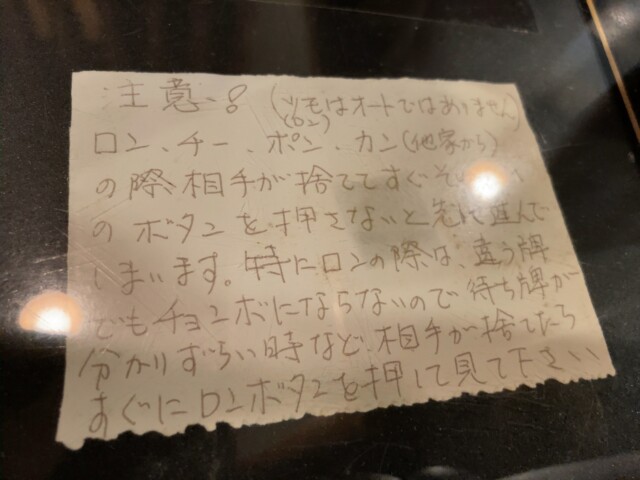 注意:8 (ツモはオートではありません)
(ロン)
ロン、チー、ポン、カン(他家から)
の際相手が捨ててすぐそ
のボタンを押さないと先に進んで
しまいます。特にロンの際は、違う牌
でもチョンボにならないので待ち牌が
分かりずらい時など、相手が捨てたら
すぐにロンボタンを押して見て下さい